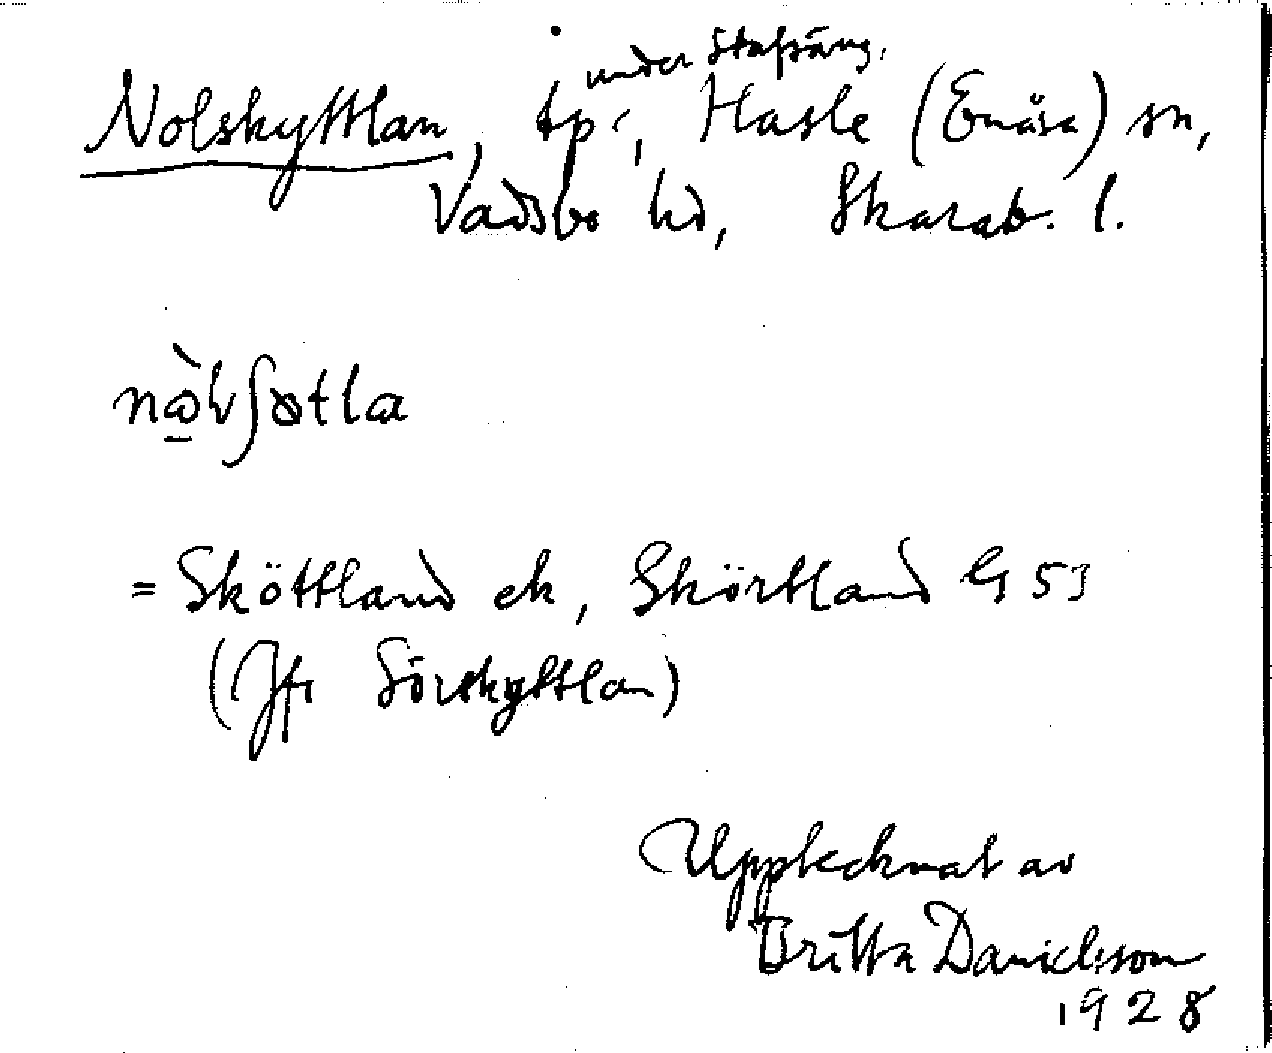 under Stafsäng.
Nolskyttlan, tp., Hasle (Enåsa) sn,
Vadsbo hd, Skarab. l.
= Sköttland ek, Skörtland G 53
(Jfr Sörskyttlan)
Upptecknat av
Britta Danielsson
1928